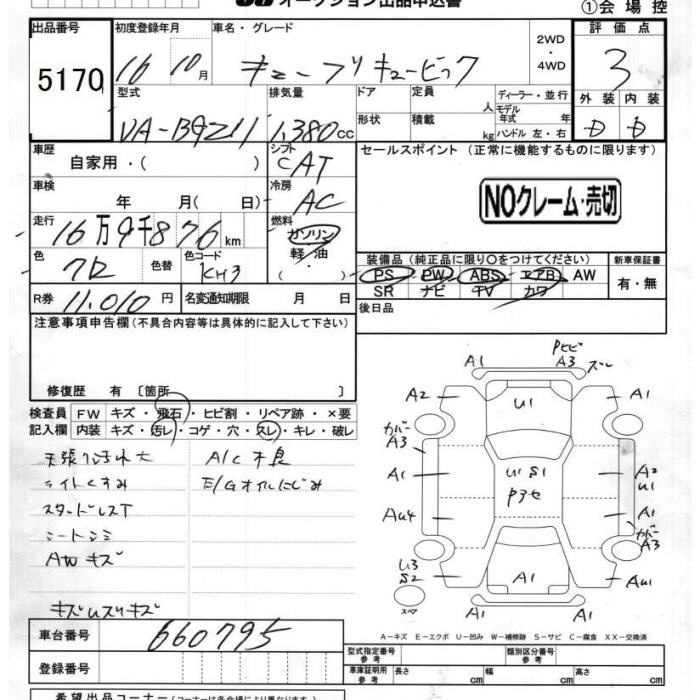 オークション出品申込書
①会場控
出品番号
5170
初度登録年月
16 10月
車名・グレード
キューブ キュービック
2WD
・
4WD
評価点
3
型式
UA-BGZ11
排気量
1,380cc
ドア
定員
人
形状
積載
kg
ディーラー・並行
モデル年式 年
ハンドル 左・右
外装 内装
D D
車歴
自家用・( )
シフト
CAT
セールスポイント (正常に機能するものに限ります)
NOクレーム・売切
車検
年 月( 日)
冷房
AC
走行
16万9千876km
燃料
ガソリン
軽油
・
色
クロ
色替
色コード
KH3
装備品(純正品に限り○をつけてください)
PS PW ABS エアB AW
SR ナビ TV カワ
新車保証書
有・無
R券
11,010円
名変通知期限 月 日
後日品
注意事項申告欄(不具合内容等は具体的に記入して下さい)
修復歴 有〔箇所 〕
検査員
記入欄
FW キズ・飛石・ヒビ割・リペア跡・×要
内装 キズ・汚レ・コゲ・穴・スレ・キレ・破レ
天張り汚れ大
A/C不良
ライトくすみ
E/Gオイルにじみ
スタッドレスT
シートシミ
AWキズ
キズUスリキズ
A1
Pヒビ
A3
ズレ
A2
U1
A1
カバー
A3
A1
U1 S1
Pアセ
A2
U1
AU4
A1
カバー
A3
U3
S2
A1
AU1
スペア
A1
A1
A−キズ E−エクボ U−凹み W−補修跡 S−サビ C−腐食 XX−交換済
車台番号
660795
型式指定番号
参考
類別区分番号
参考
登録番号
車庫証明用
参考
長さ cm
幅 cm
高さ cm
希望出品コーナー(コーナーは各会場により異なります)